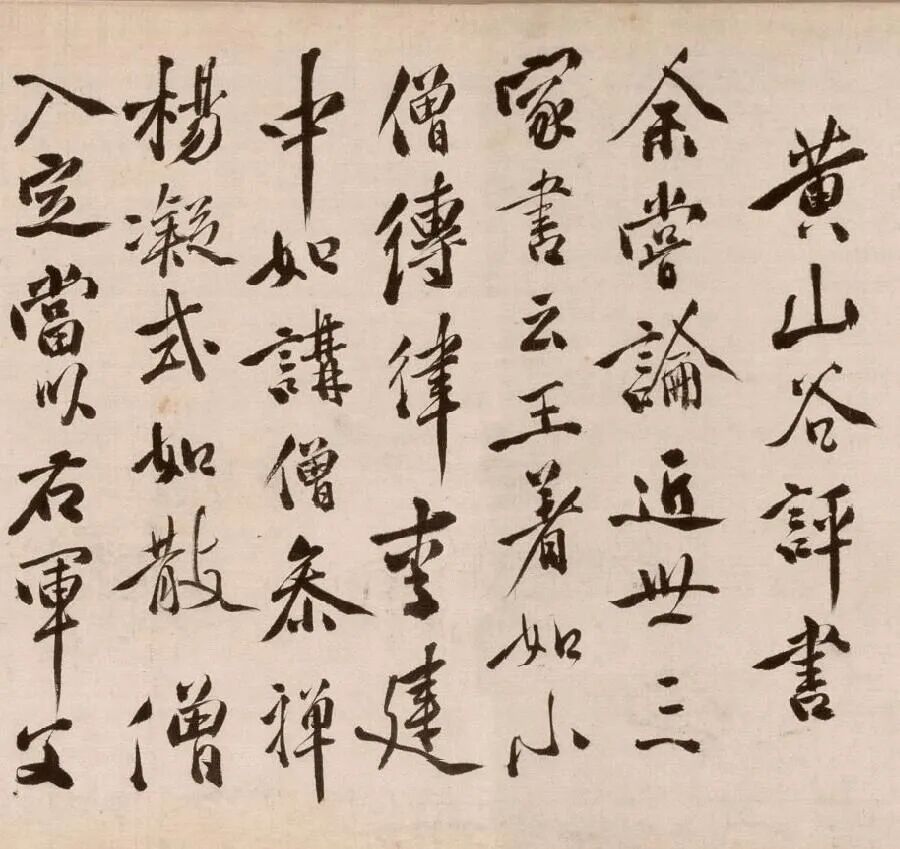 黄山谷評書
余嘗論近世三
家書云王著如小
僧傳律李建
中如講僧叅禅
楊凝式如散僧
入定當以右軍父